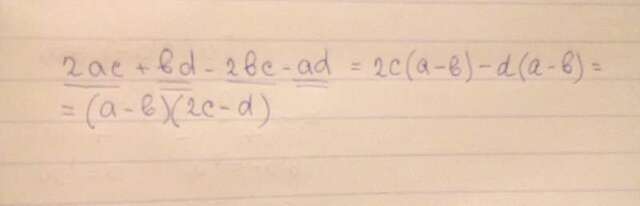 2ac + bd - 2bc - ad = 2c(a-b) - d(a-b) =
= (a-b)(2c-d)